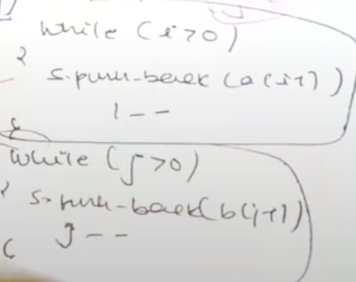 while (i>0)
{
s.push-back (a(i-1))
i--
}
while (j>0)
{
s.push-back(b(j-1))
j--